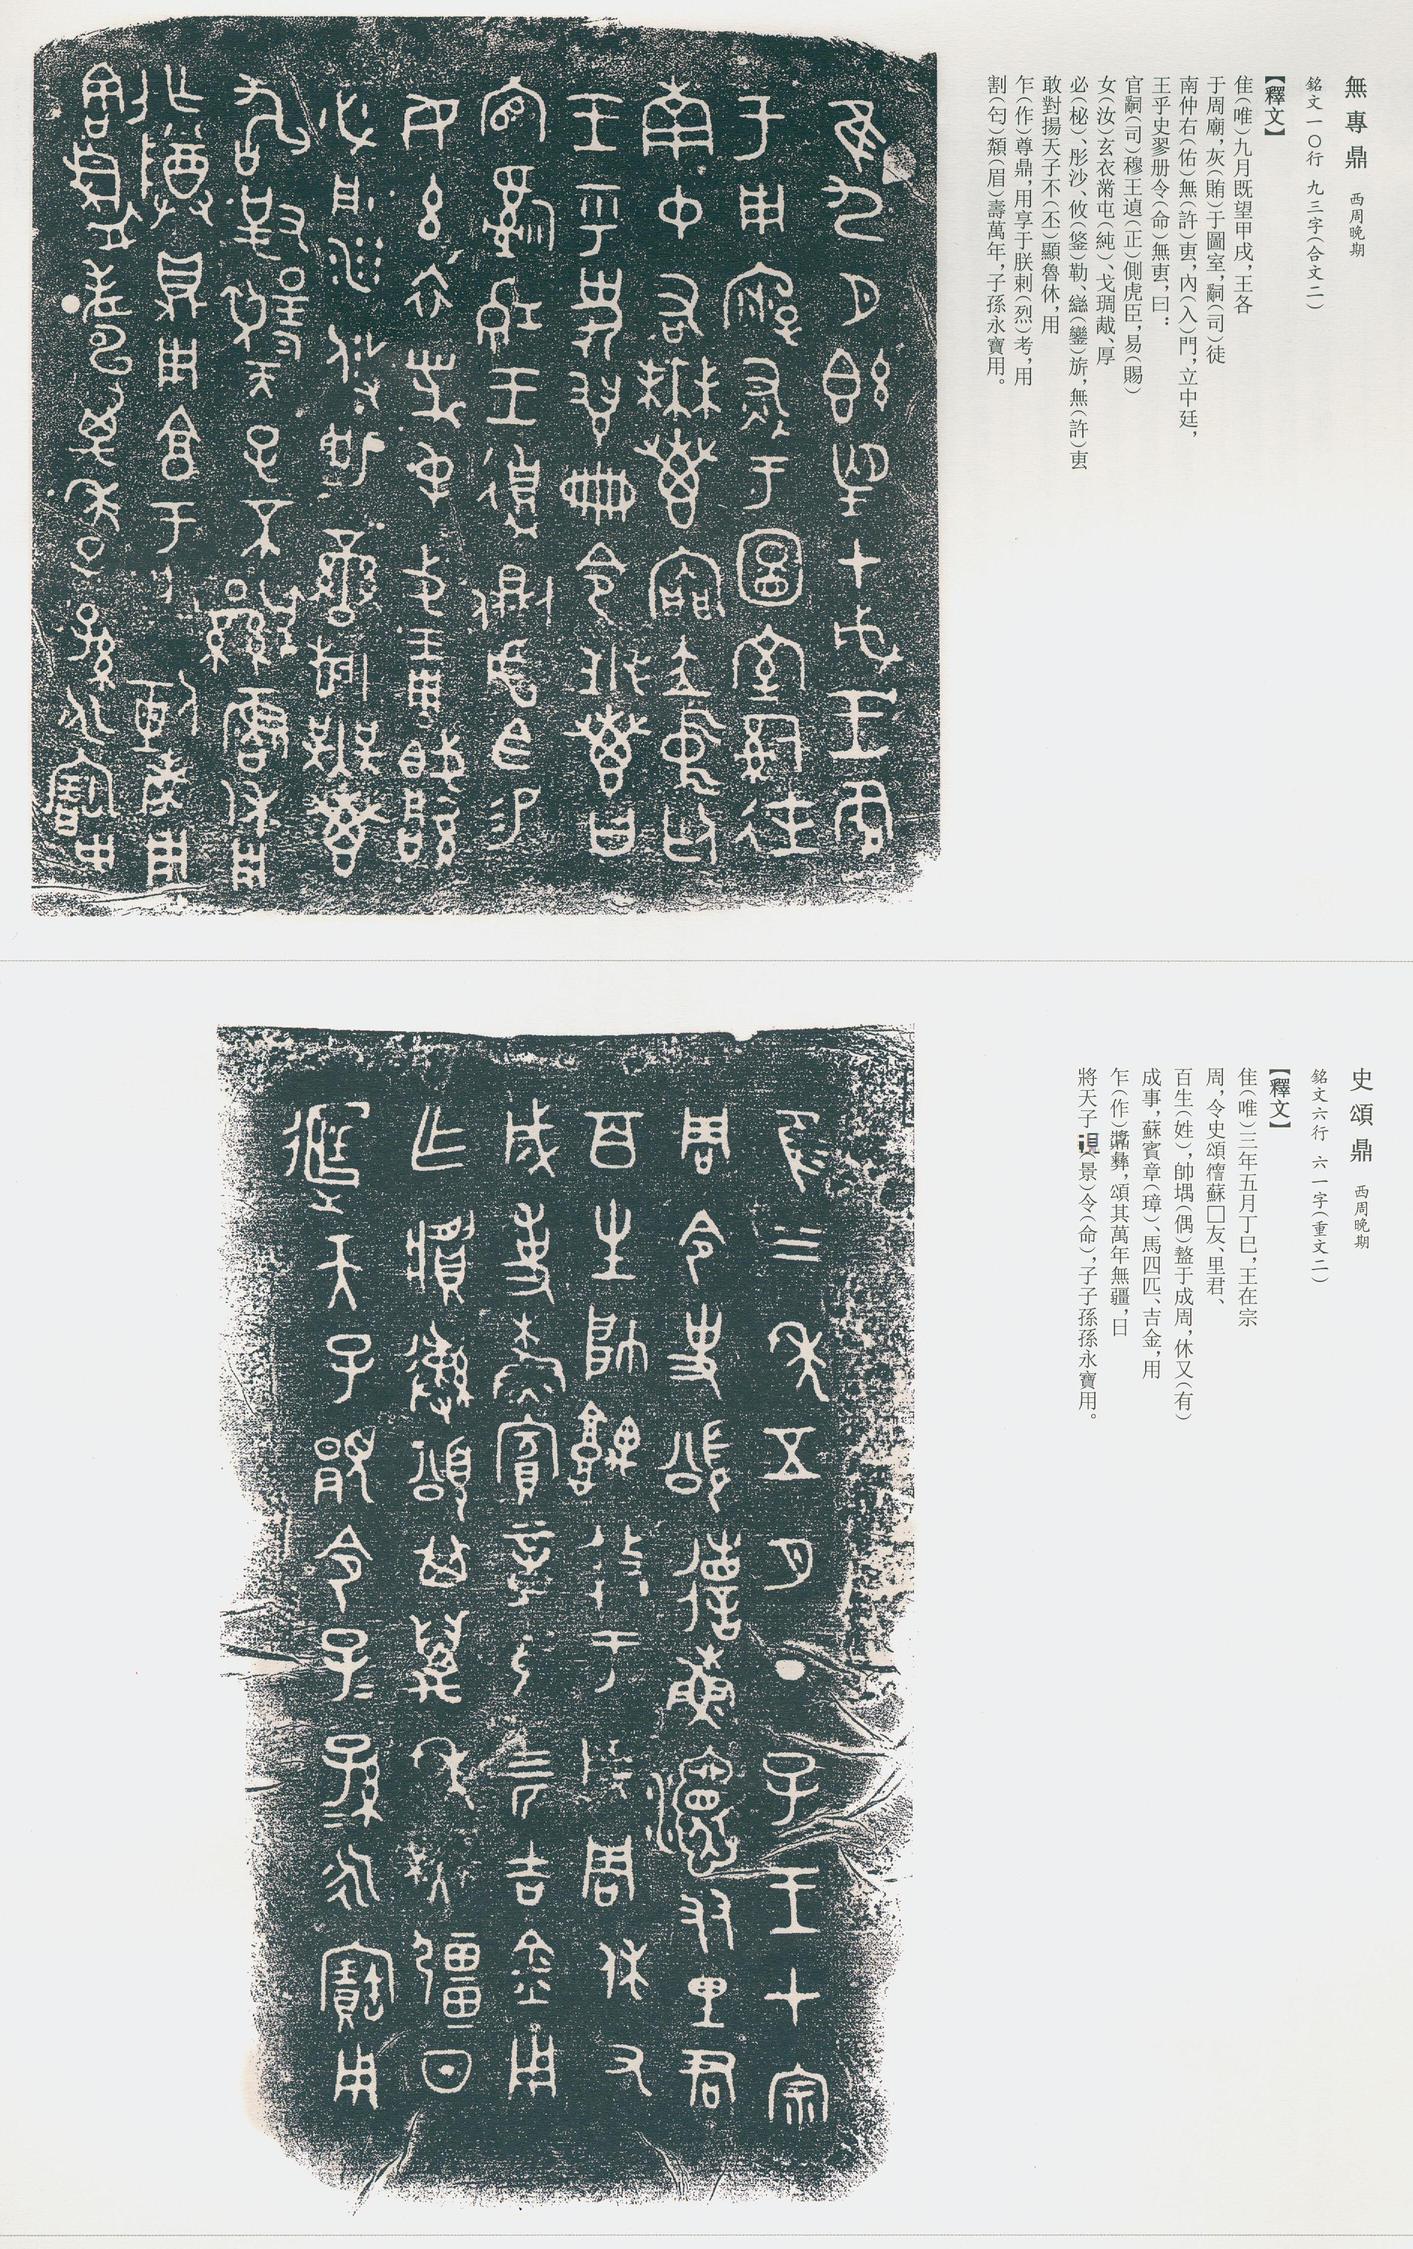 無專鼎 西周晚期
銘文一〇行 九三字(合文二)
【釋文】
隹(唯)九月既望甲戌,王各
于周廟,灰(賄)于圖室,嗣(司)徒
南仲右(佑)無(許)叀,內(入)門,立中廷,
王乎史翏册令(命)無叀,曰:
官嗣(司)穆王遉(正)側虎臣,易(賜)
女(汝)玄衣黹屯(純)、戈琱胾、厚
必(秘)、彤沙、攸(鋚)勒、䜌(鑾)旂,無(許)叀
敢對揚天子不(丕)顯魯休,用
乍(作)尊鼎,用享于朕剌(烈)考,用
割(匃)頮(眉)壽萬年,子孫永寶用。
史頌鼎 西周晚期
銘文六行 六一字(重文二)
【釋文】
隹(唯)三年五月丁巳,王在宗
周,令史頌㣛蘇□友、里君、
百生(姓),帥堣(偶)盩于成周,休又(有)
成事,蘇賓章(璋)、馬四匹、吉金,用
乍(作)䵼彝,頌其萬年無疆,日
將天子(景)令(命),子子孫孫永寶用。